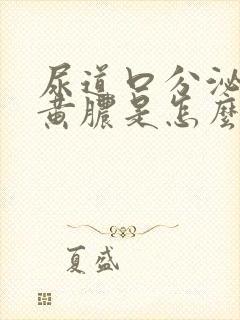 尿道口分泌
黄膿是怎麼
夏盛